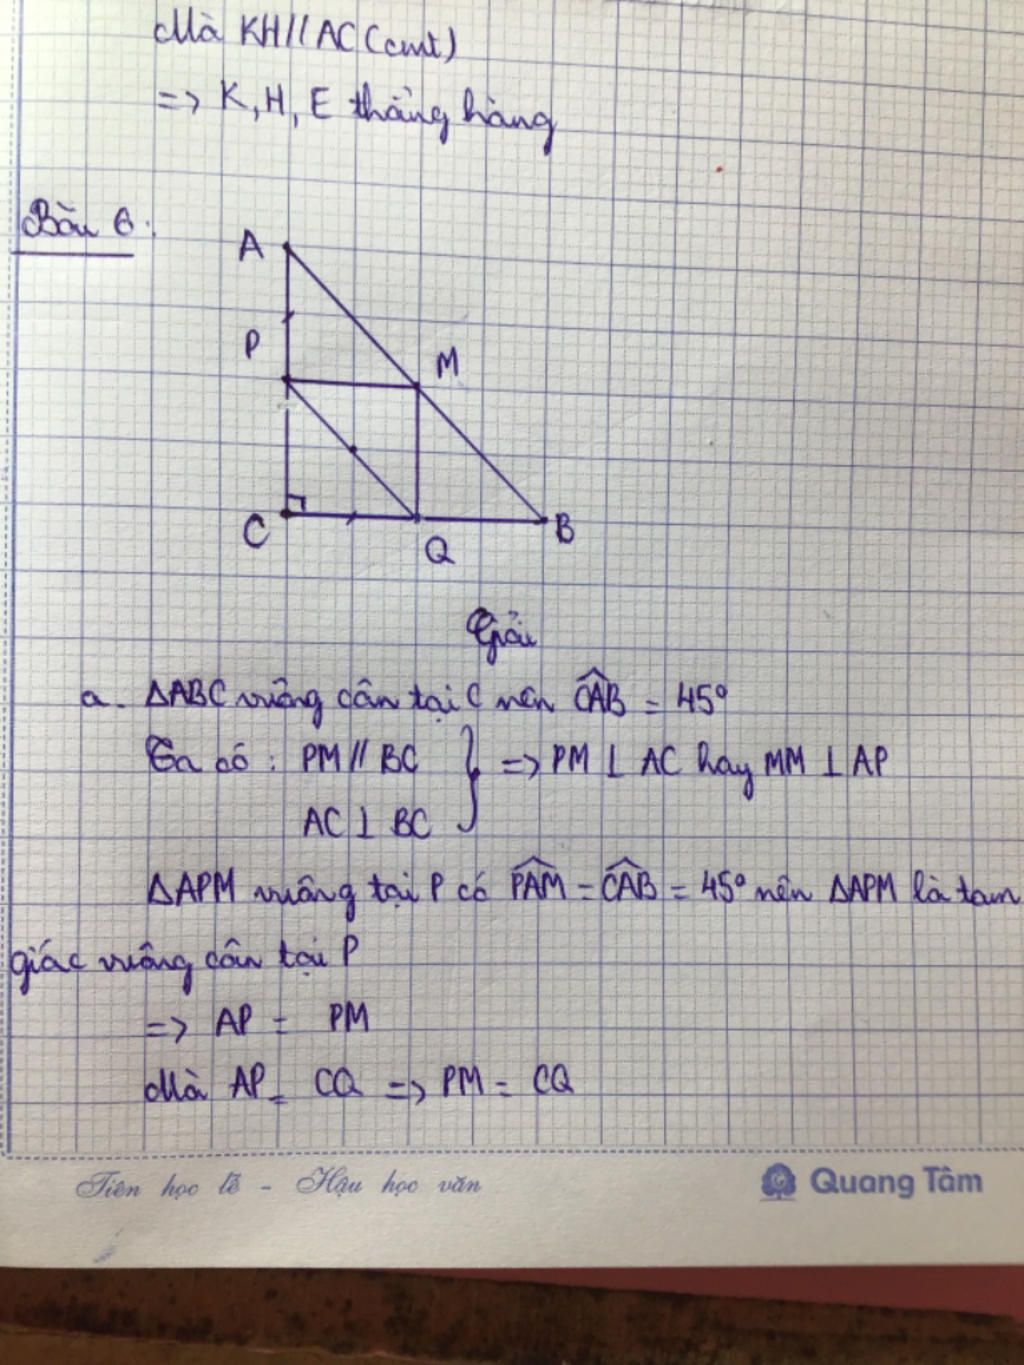 Mà KH//AC (cmt)
=> K, H, E thẳng hàng
Bài 6:
A
P
M
C
Q
B
Giải
a. ΔABC vuông cân tại C nên CAB = 45°
Ta có: PM // BC
AC ⊥ BC
} => PM ⊥ AC hay MM ⊥ AP
ΔAPM vuông tại P có PAM = CAB = 45° nên ΔAPM là tam
giác vuông cân tại P
=> AP = PM
Mà AP = CQ => PM = CQ
Tiên học lễ - Hậu học văn
Quang Tâm